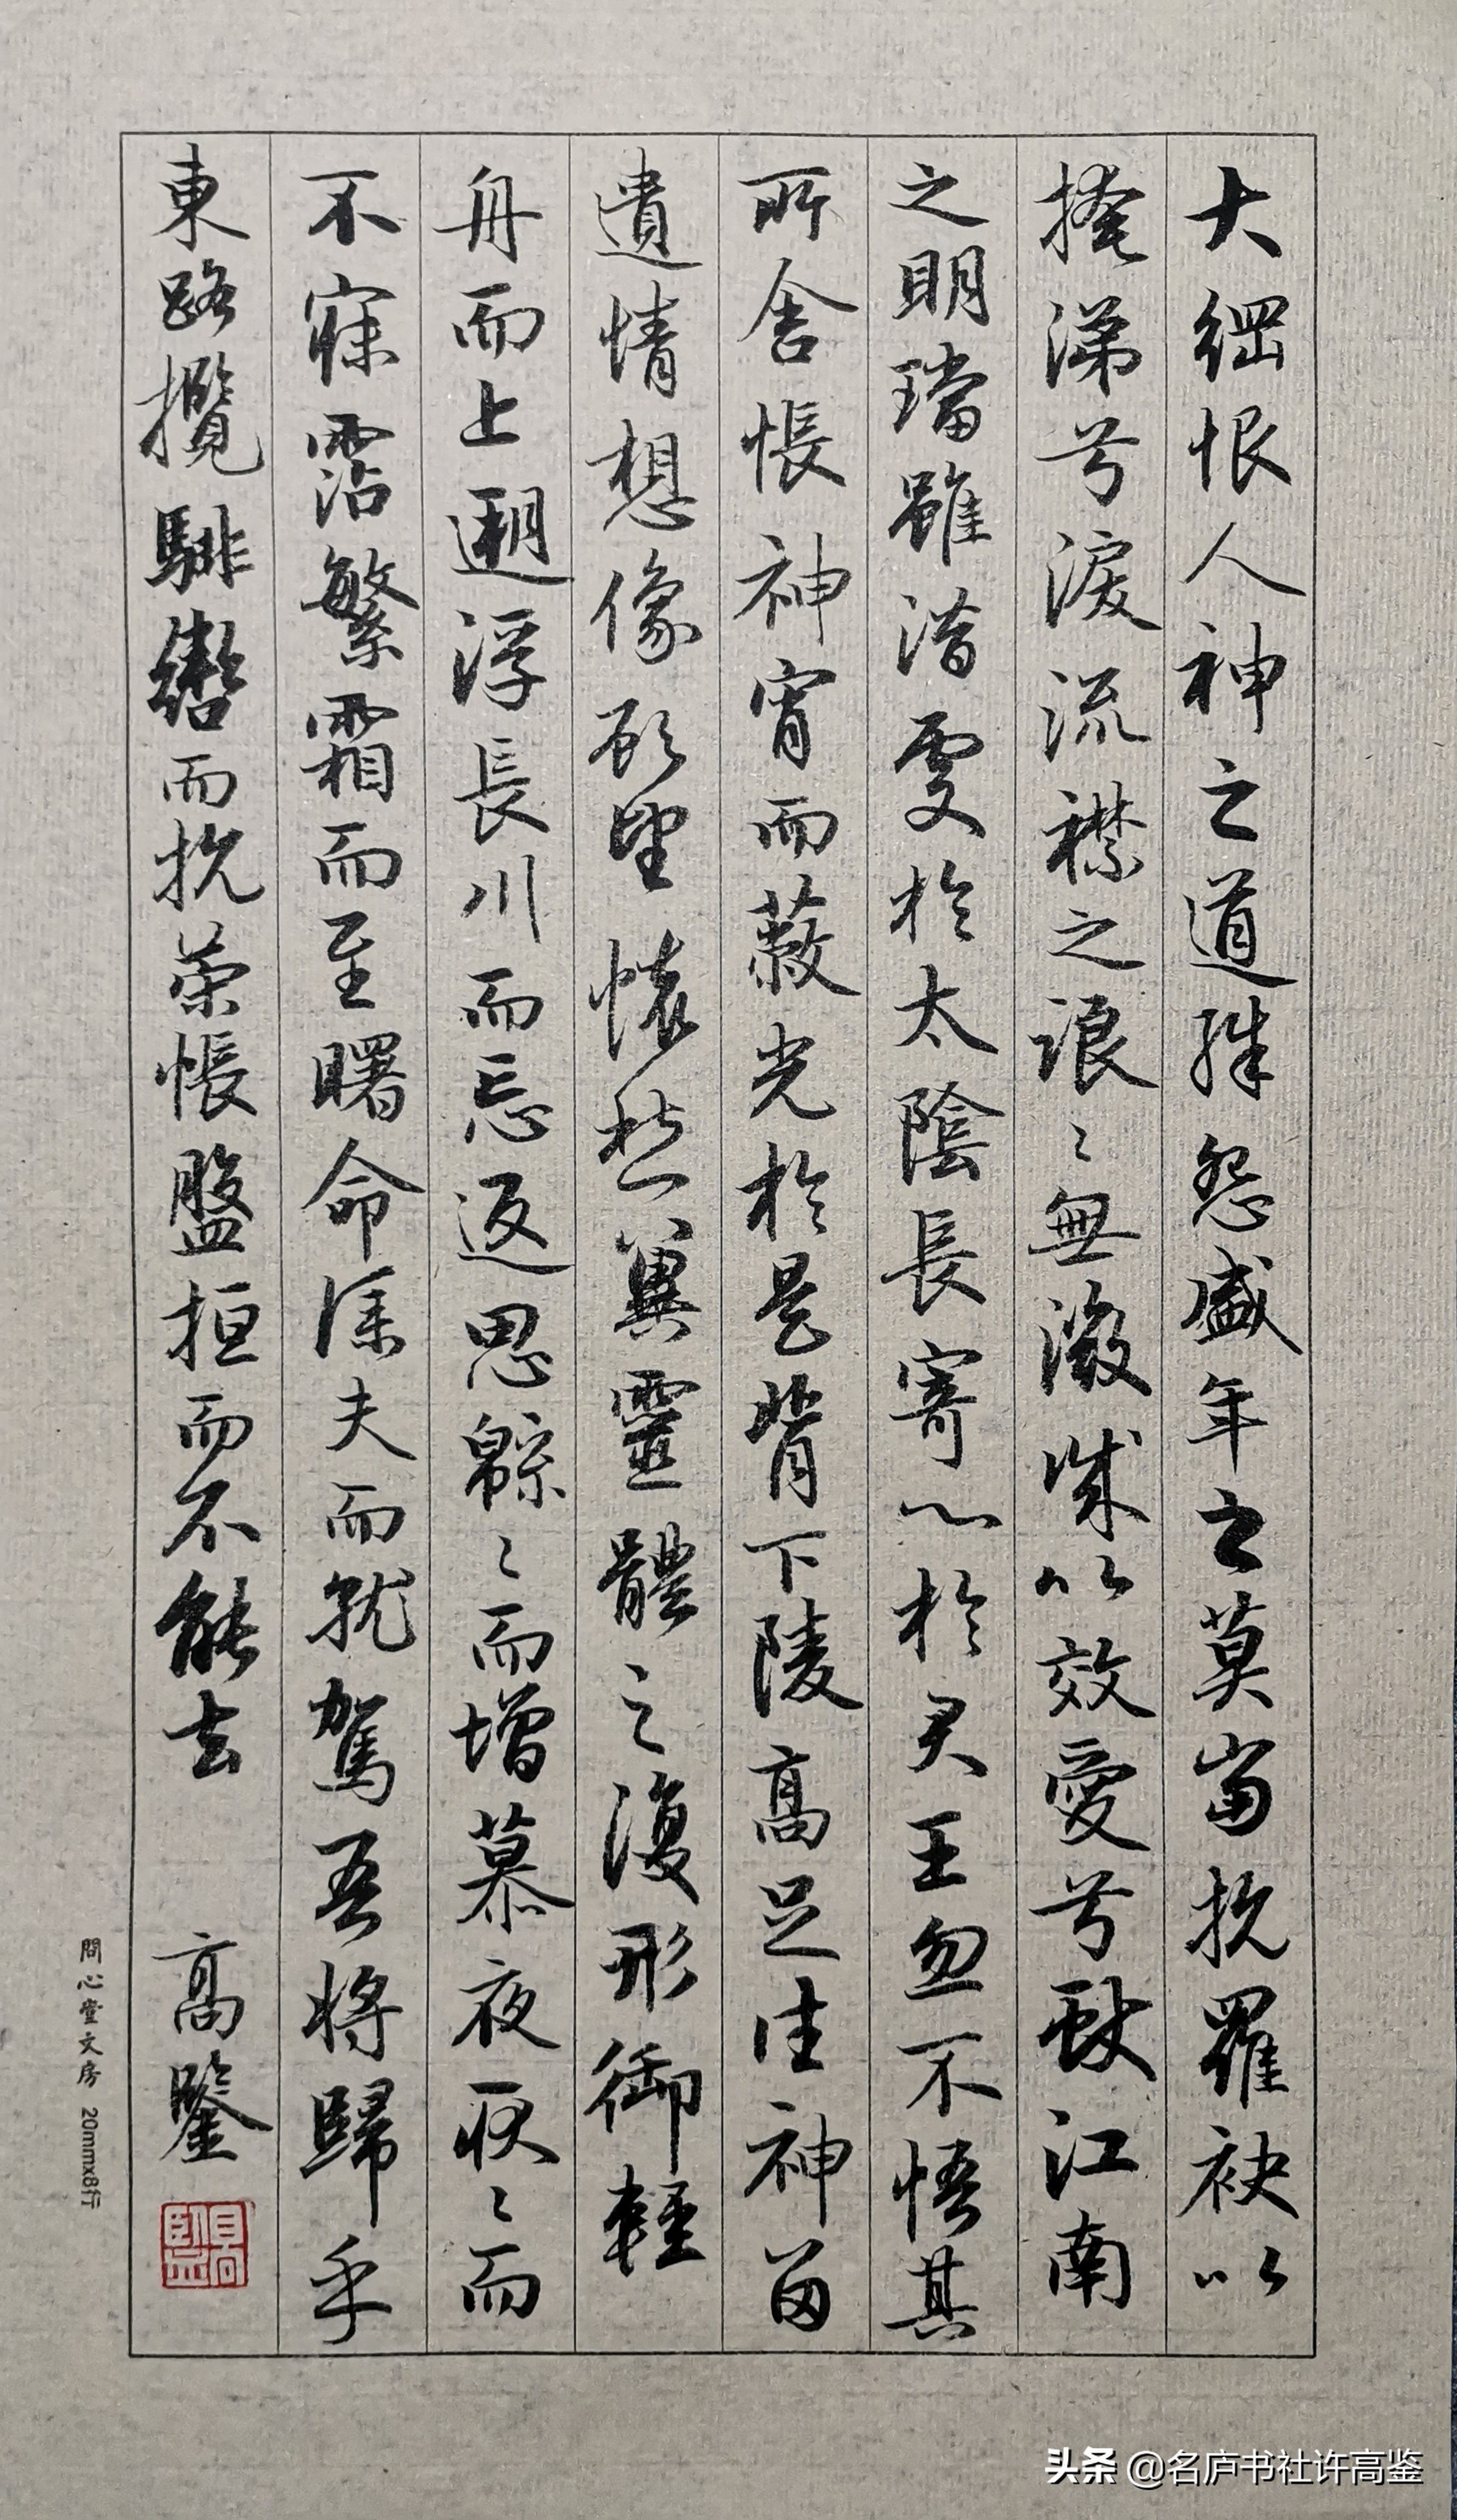 大綱恨人神之道殊怨盛年之莫當抗羅袂以
掩涕兮淚流襟之浪〻無微誠以效愛兮獻江南
之明璫雖潛處於太陰長寄心於君王忽不悟其
所舍悵神宵而蔽光於是背下陵高足往神留
遺情想像顧望懷愁冀靈體之復形御輕
舟而上遡浮長川而忘返思緜〻而增慕夜耿〻而
不寐霑繁霜而至曙命僕夫而就駕吾將歸乎
東路攬騑轡而抗策悵盤桓而不能去
高鑒
高鑒
問心堂文房 20mmx8行
头条 @名庐书社许高鉴